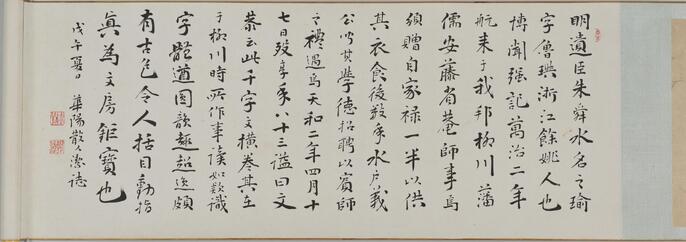 明遺臣朱舜水名之瑜
字魯璵浙江餘姚人也
博聞强記萬治二年
航来于我邦柳川藩
儒安藤省菴師事焉
贈自家禄一半以供
其衣食後数年水戶義
公聞其學德招聘以賓師
之禮遇焉天和二年四月十
七日歿享年八十三謚曰文
恭云此千字文横巻其在
于柳川時所作事詳如款識
字體遒圓韵趣超逸頗
有古色令人括目動指
眞為文房鉅寶也
戊午夏日 華陽散人潔誌